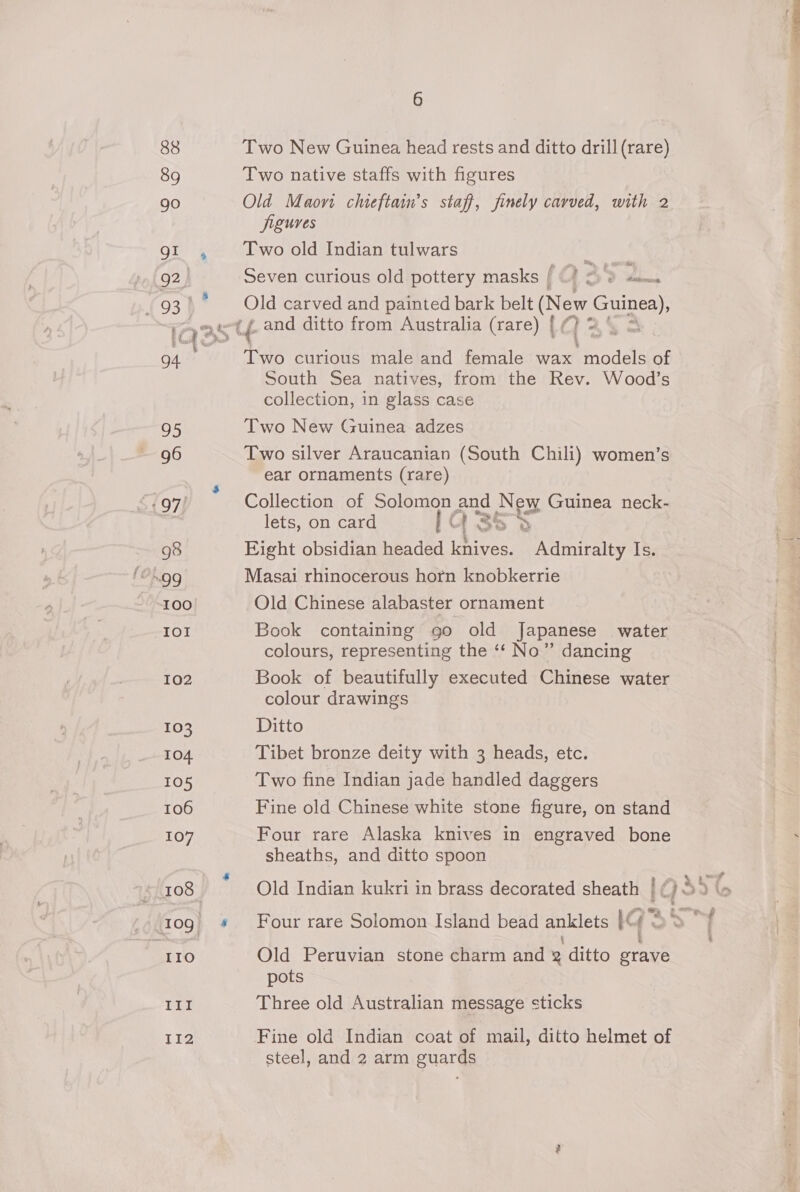 6
88 Two New Guinea head rests and ditto drill (rare)
89 Two native staffs with figures
90 Old Maori chieftain's staff, finely carved, with 2
figures
91 Two old Indian tulwars
92 Seven curious old pottery masks
93 Old carved and painted bark belt (New Guinea),
and ditto from Australia (rare)
94 Two curious male and female wax models of
South Sea natives, from the Rev. Wood's
collection, in glass case
95 Two New Guinea adzes
96 Two silver Araucanian (South Chili) women's
ear ornaments (rare)
97 Collection of Solomon and New Guinea neck-
lets, on card
98 Eight obsidian headed knives. Admiralty Is.
99 Masai rhinocerous horn knobkerrie
100 Old Chinese alabaster ornament
101 Book containing 90 old Japanese water
colours, representing the “ No ” dancing
102 Book of beautifully executed Chinese water
colour drawings
103 Ditto
104 Tibet bronze deity with 3 heads, etc.
105 Two fine Indian jade handled daggers
106 Fine old Chinese white stone figure, on stand
107 Four rare Alaska knives in engraved bone
sheaths, and ditto spoon
108 Old Indian kukri in brass decorated sheath
109 Four rare Solomon Island bead anklets
110 Old Peruvian stone charm and 2 ditto grave
pots
111 Three old Australian message sticks
112 Fine old Indian coat of mail, ditto helmet of
steel, and 2 arm guards